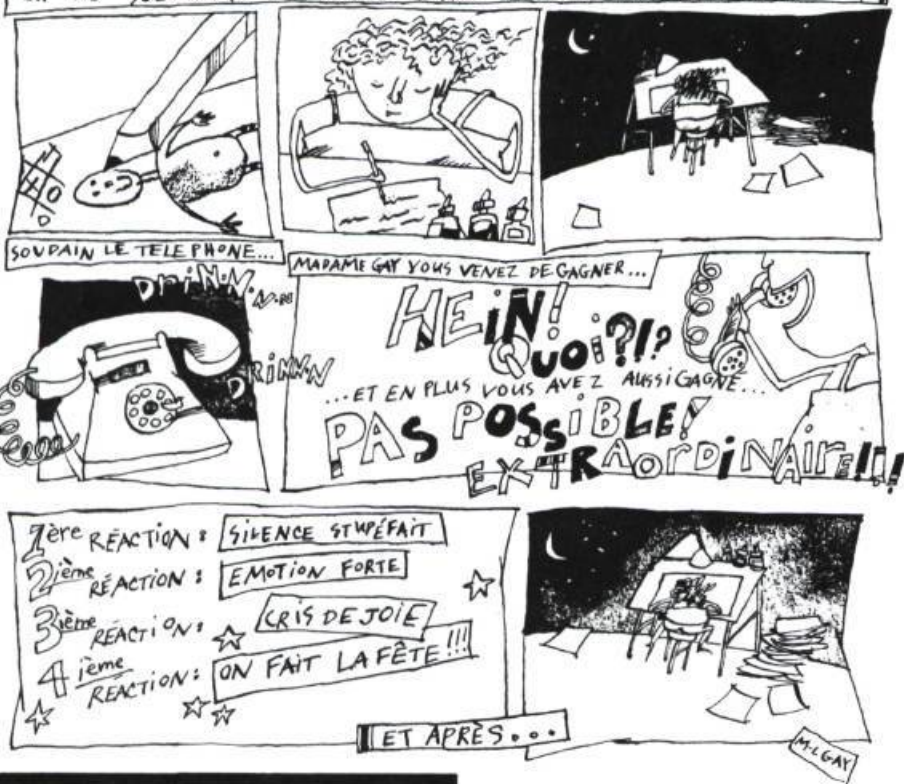 SOUDAIN LE TELEPHONE...
DRiNN.N.NN
DRiNN.N
MADAME GAY VOUS VENEZ DE GAGNER...
HEiN!
QUOi?!?
...ET EN PLUS VOUS AVEZ AUSSI GAGNÉ...
PAS POSSiBLE!
EXTRAOrDiNAirE!!!!
1ère RÉACTiON : SiLENCE STUPÉFAiT
2ième RÉACTiON : EMOTiON FORTE
3ième RÉACTiON : CRiS DE JOiE
4ième RÉACTiON : ON FAiT LA FÊTE!!!
ET APRÈS...
M.L GAY